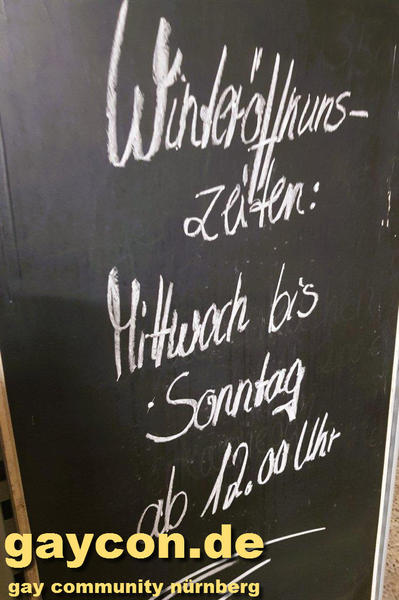 Winteröffnuns-
zeiten:
Mittwoch bis
Sonntag
ab 12.00 Uhr
gaycon.de
gay community nürnberg